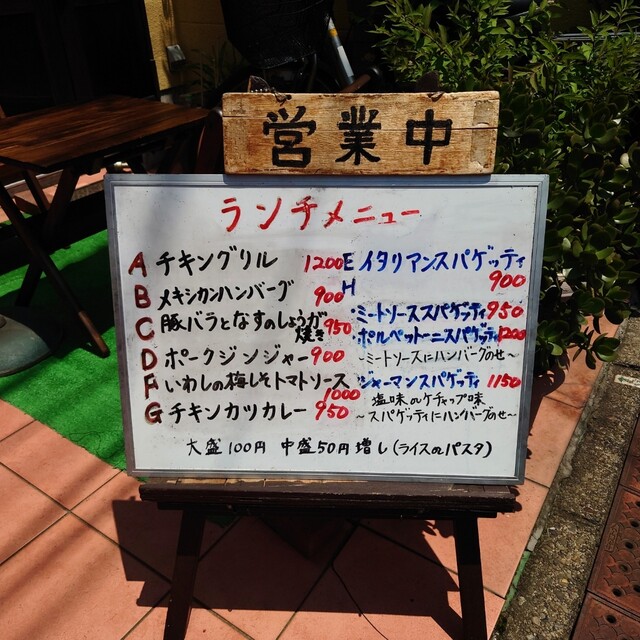 営業中
ランチメニュー
A チキングリル 1200
B メキシカンハンバーグ 900
C 豚バラとなすのしょうが焼き 950
D ポークジンジャー 900
F いわしの梅しそトマトソース 1000
G チキンカツカレー 950
E イタリアンスパゲッティ 900
H
・ミートソーススパゲッティ 950
・ポルペットーニスパゲッティ 1200
～ミートソースにハンバーグのせ～
・ジャーマンスパゲッティ 1150
塩味のケチャップ味
～スパゲッティにハンバーグのせ～
大盛100円 中盛50円増し(ライスorパスタ)